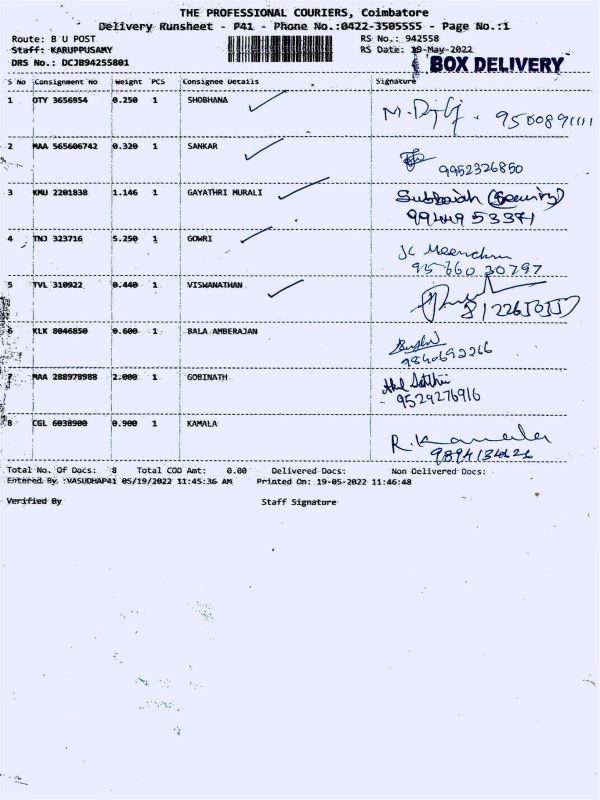 THE PROFESSIONAL COURIERS, Coimbatore
Delivery Runsheet - P41 - Phone No.:0422-3505555 - Page No.:1
Route: B U POST RS No.: 942558
Staff: KARUPPUSAMY RS Date: 19-May-2022
DRS No.: DCJB94255801 BOX DELIVERY
S No Consignment No Weight PCS Consignee Details Signature
1 OTY 3656954 0.250 1 SHOBHANA
2 MAA 565606742 0.320 1 SANKAR 9952326850
3 KMU 2201838 1.146 1 GAYATHRI MURALI Subbaiah (Security)
9944953371
4 TNJ 323716 5.250 1 GOWRI
95660 30797
5 TVL 310922 0.440 1 VISWANATHAN
6 KLK 8046850 0.600 1 BALA AMBERAJAN
7 MAA 288978988 2.000 1 GOBINATH
- 9529276916
8 CGL 6038900 0.900 1 KAMALA R. Kamala
Total No. Of Docs: 8 Total COD Amt: 0.00 Delivered Docs: Non Delivered Docs:
Entered By :VASUDHAP41 05/19/2022 11:45:36 AM Printed On: 19-05-2022 11:46:48
Verified By Staff Signature